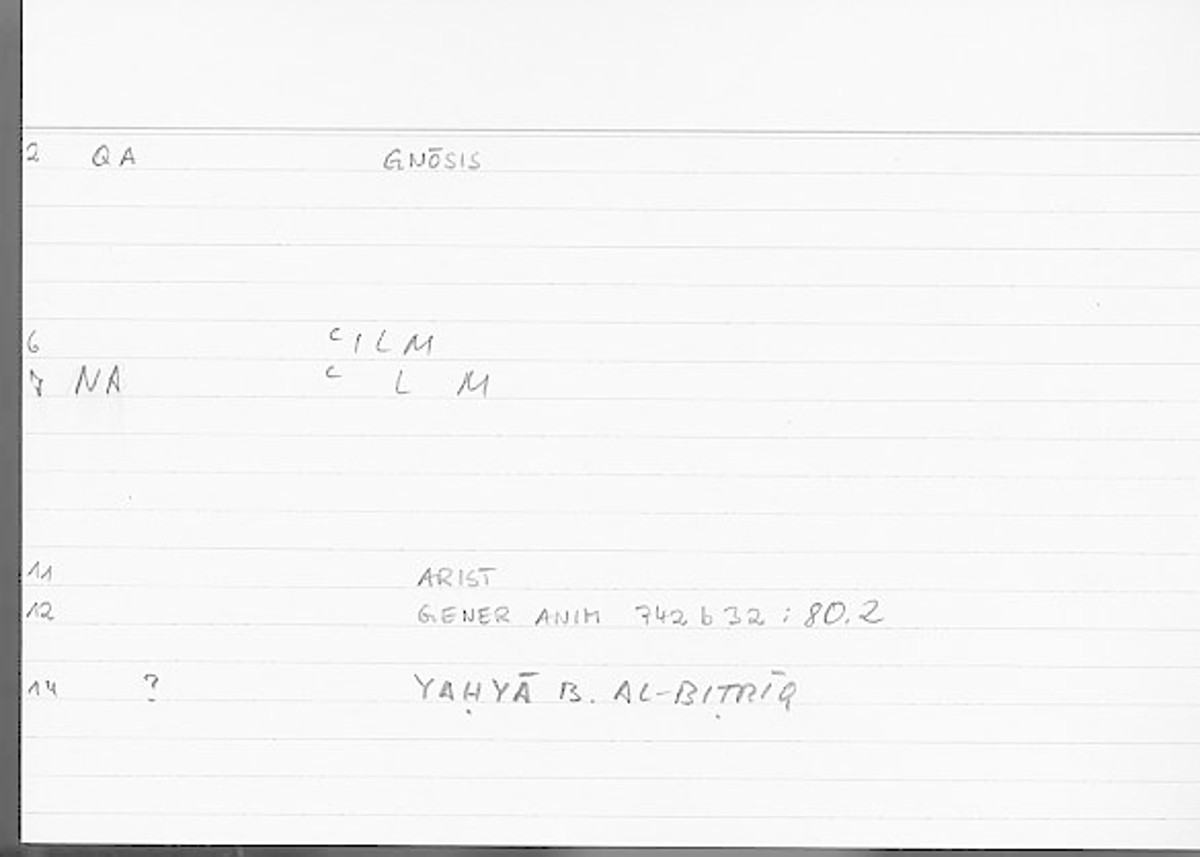 2 QA GNŌSIS
6 ᶜILM
7 NA ᶜ L M
11 ARIST
12 GENER ANIM 742 b 32 ; 80.2
14 ? YAḤYĀ B. AL-BIṬRĪQ